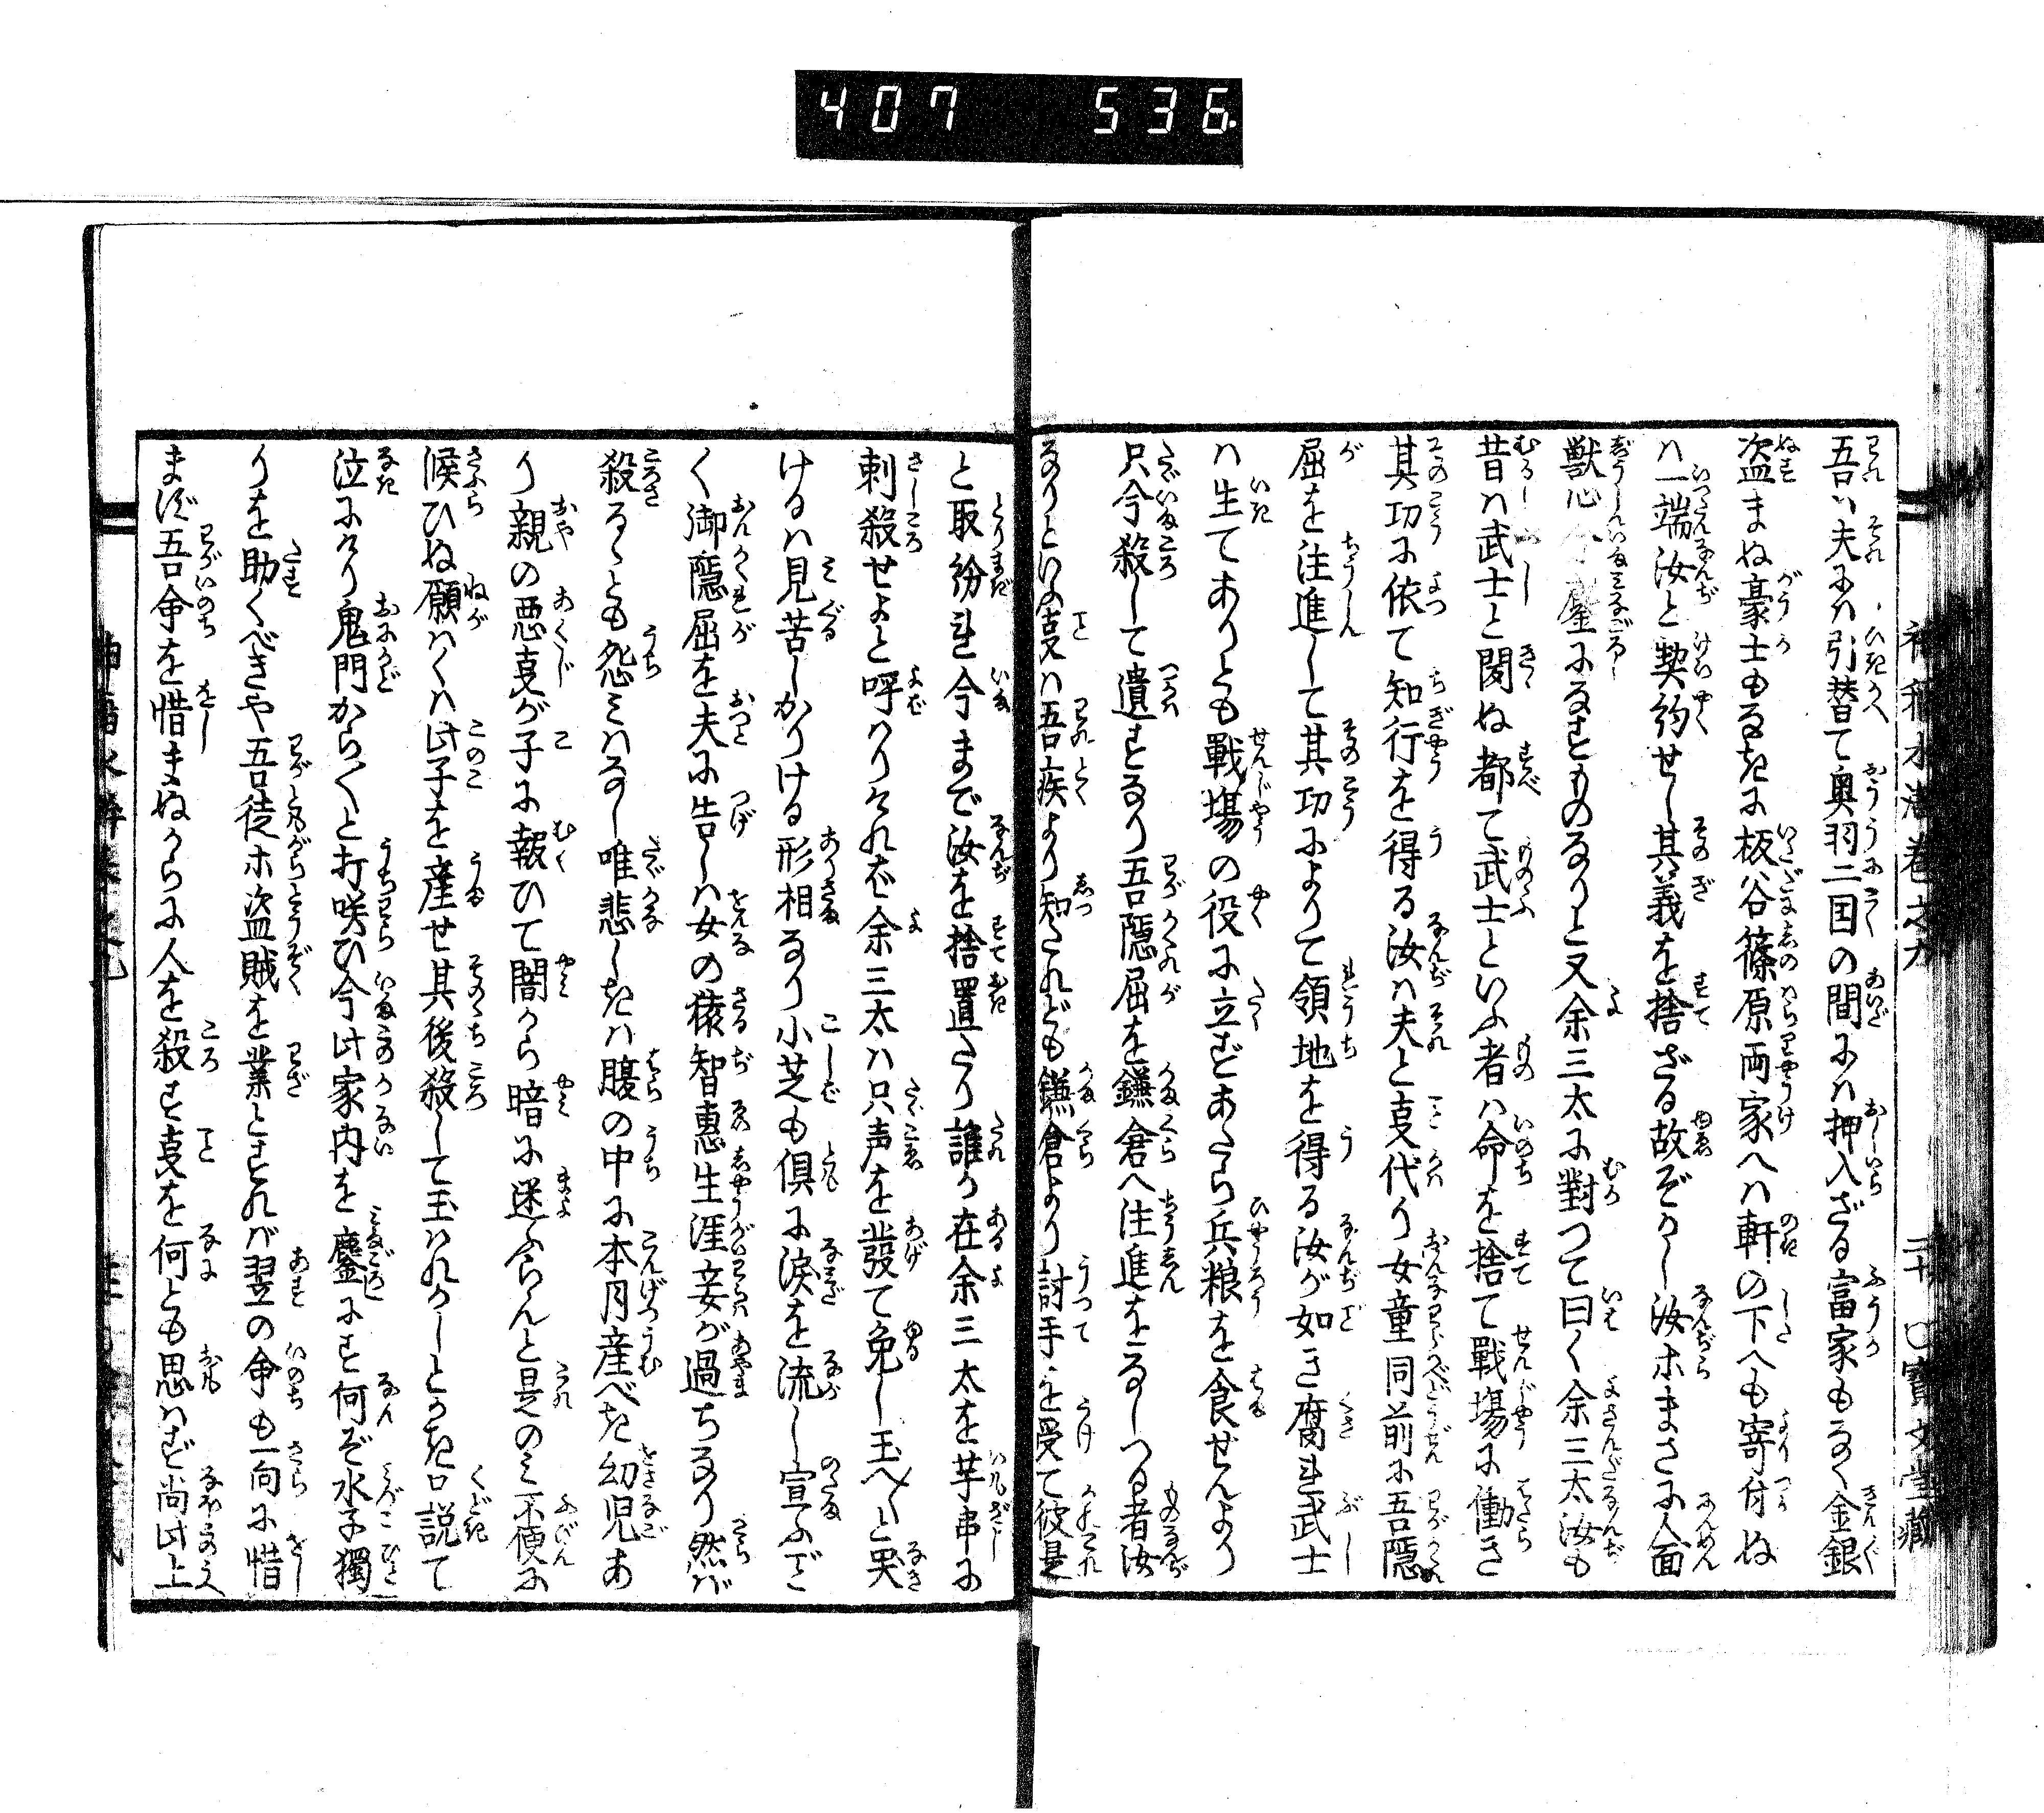 407 536
吾ハ夫に引替て奥羽二国の間にハ押入ざる富家もなく金銀
盗まぬ豪士もなきに板谷篠原両家へハ軒の下へも寄付ぬ
ハ一端汝と契約せし其義を捨ざる故ぞかし汝ホまさに人面
獣心 鏖になすものなりと又余三太に對つて曰く余三太汝も
昔ハ武士と聞ぬ都て武士といふ者ハ命を捨て戰場に働き
其功に依て知行を得る汝ハ夫と叓代り女童同前に吾隠
屈を注進して其功によりて領地を得る汝が如き腐れ武士
ハ生てありとも戰場の役に立ずあたら兵粮を食せんより
只今殺して遣すなり吾隠屈を鎌倉へ注進をなしつる者汝
なりといふ叓ハ吾疾より知たれども鎌倉より討手を受て彼是
と取紛れ今まで汝を捨置たり誰か在余三太を芋串に
刺殺せよと呼ハりけれバ余三太ハ只声を發て免し玉へ〳〵と哭
けるハ見苦しかりける形相なり小芝も倶に涙を流し宣ふごと
く御隠屈を夫に告しハ女の猿智惠生涯妾が過ちなり然バ
殺るゝとも怨ミハなし唯悲しきハ腹の中に本月産べき幼児あ
り親の悪叓が子に報ひて闇から暗に迷ふらんと是のミ不便に
候ひぬ願ハくハ此子を産せ其後殺して玉ハれかしとかき口説て
泣にけり鬼門からからと打咲ひ今此家内を鏖にす何ぞ水子獨
りを助くべきや吾徒ホ盗賊を業とすれバ翌の命も一向に惜
まず吾命を惜まぬからに人を殺す叓を何とも思ハず尚此上